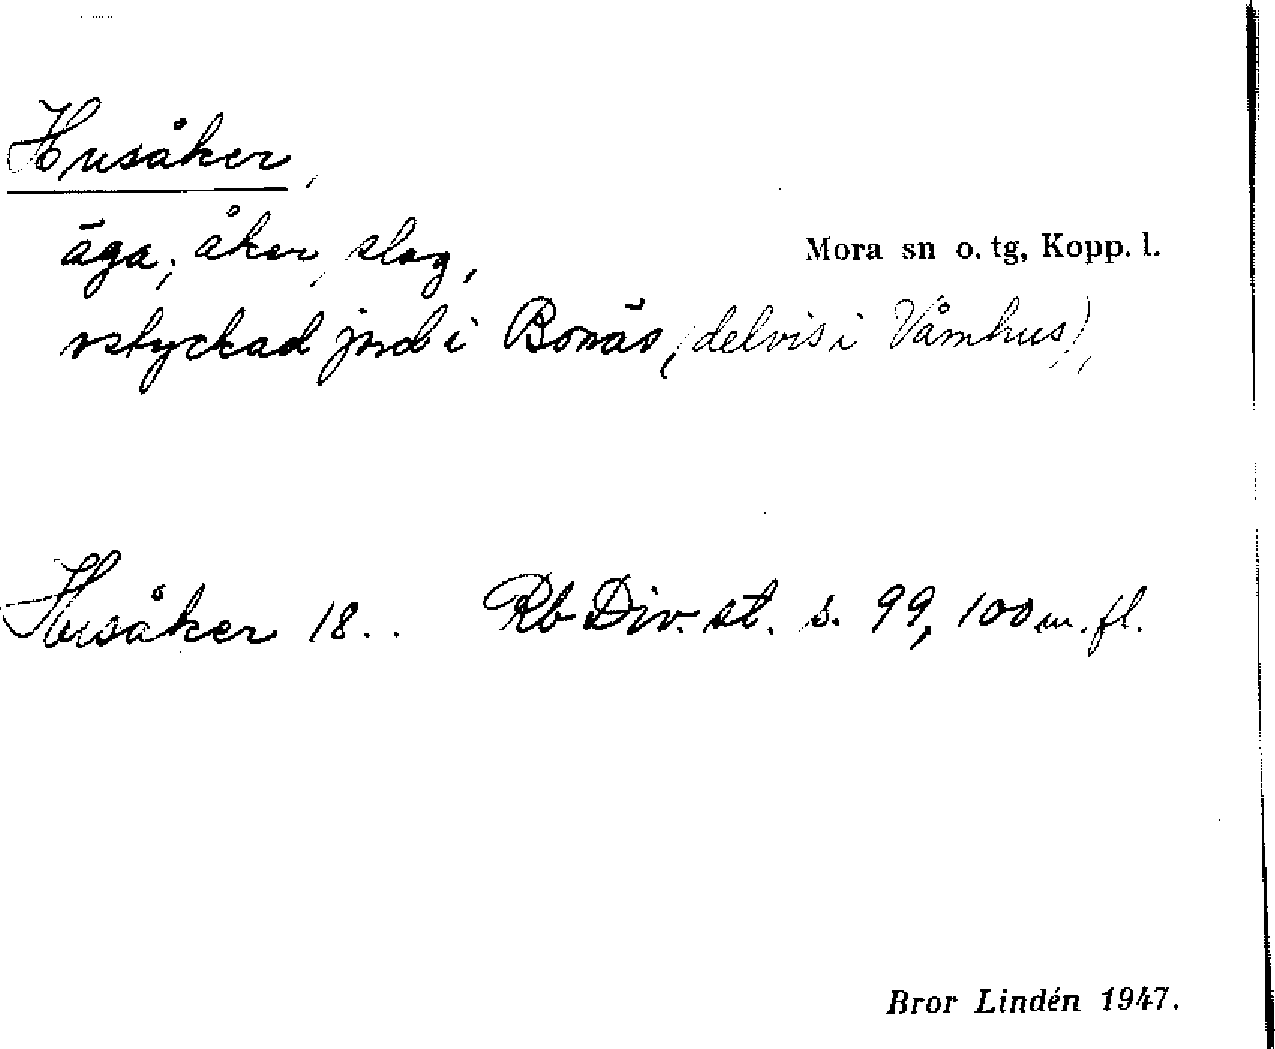 Husåker,
äga, åker, slog,
Mora sn o. tg, Kopp. l.
ostyckad jord i Bonäs, (delvis i Våmhus),
Husåker 18.. Rb Div. st. s. 99, 100 m. fl.
Bror Lindén 1947.